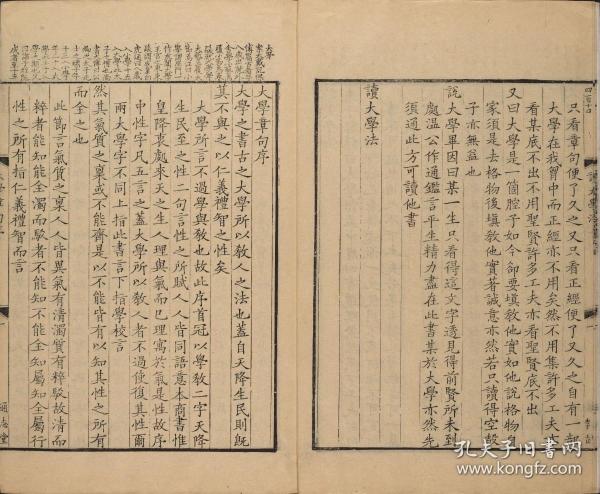 只看章句便了久之又只看正經便了又久之自有一部
大學在我胷中而正經亦不用矣然不用某許多工夫亦
看某底不出不用聖賢許多工夫亦看聖賢底不出
又曰大學是一箇腔子如今卻要塡敎他實如他說格物自
家須是去格物後塡敎他實著誠意亦然若只讀得空殼
子亦無益也
說大學畢因曰某一生只看得這文字透見得前賢所未到
處温公作通鑑言平生精力盡在此書某於大學亦然先
須通此方可讀他書
讀大學法
大學章句序
大學之書古之大學所以敎人之法也蓋自天降生民則旣
莫不與之以仁義禮智之性矣
大學所言不過學與敎也故此序首冠以學敎二字天降
生民至之性二句言性之所賦人人皆同語意本商書惟
皇降衷數來天之生人理與氣而已理寓於氣是性故序
中性字凡五言之蓋大學所以敎人者不過使復其性爾
兩大學字不同上指此書言下指學校言
然其氣質之稟或不能齊是以不能皆有以知其性之所有
而全之也
此節言氣質之稟人人皆異氣有清濁質有粹駁故清而
粹者能知能全濁而駁者不能知不能全知屬知全屬行
性之所有指仁義禮智而言
通志堂
孔夫子旧书网
www.kongfz.com